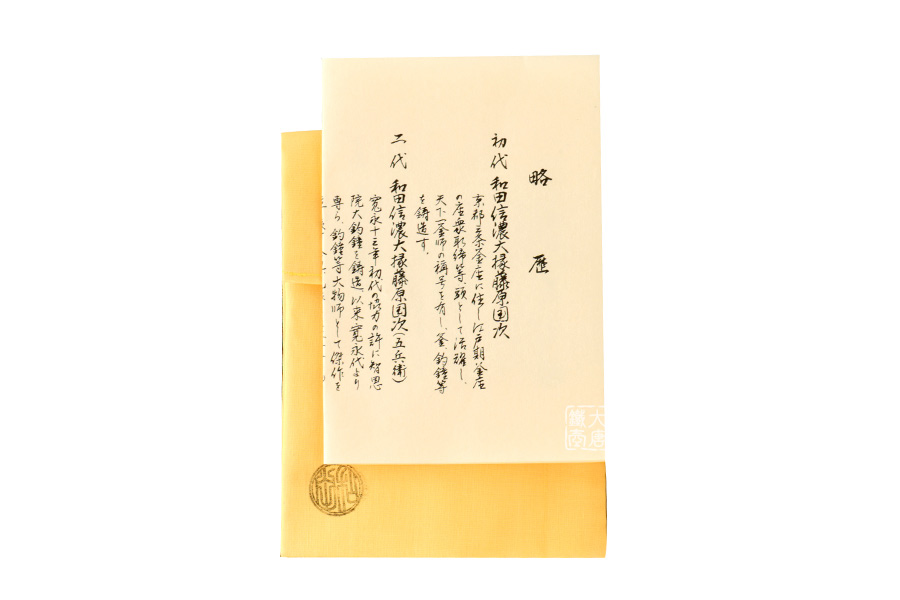 略歴
初代 和田信濃大掾藤原国次
京都三条釜座に住し江戸期釜座
の座衆取締等、頭として活躍し、
天下一釜師の称号を有し、釜、釣鐘等
を鋳造す。
二代 和田信濃大掾藤原国次(五兵衛)
寛永十三年初代の協力の許に智恩
院大釣鐘を鋳造、以来寛永代より
専ら、釣鐘等大物師として傑作を
大唐
鐵壺